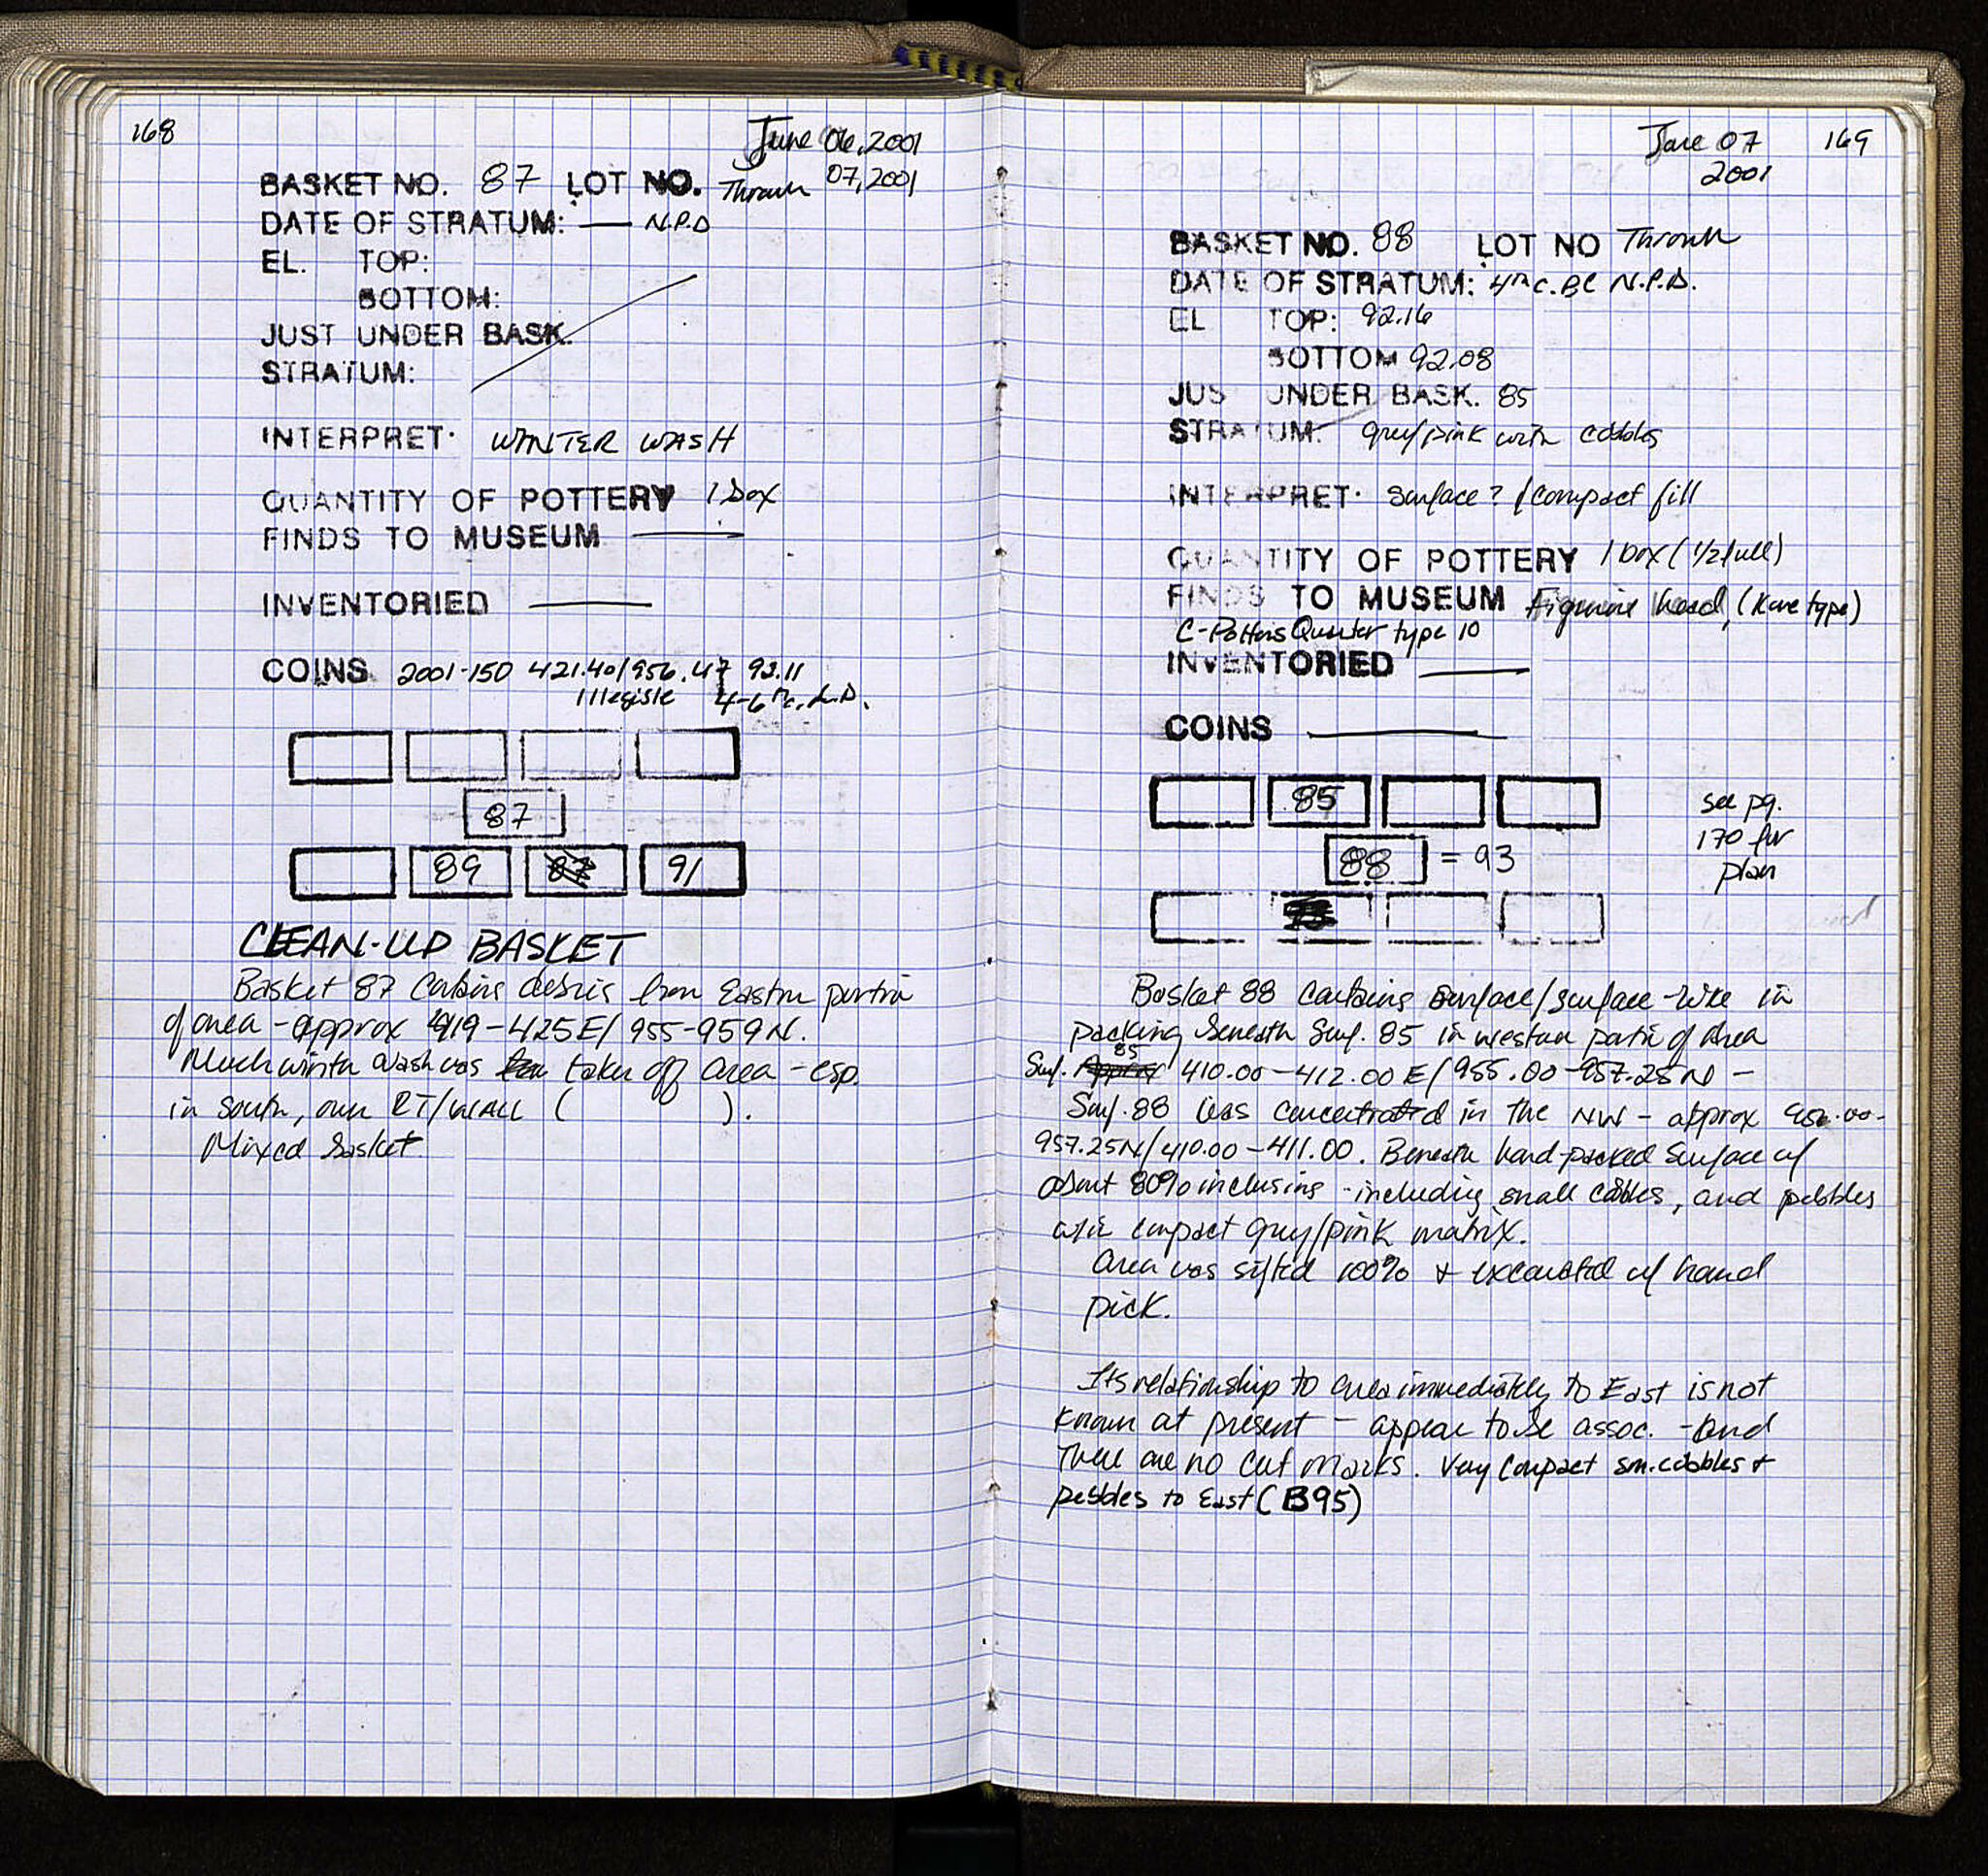 168
June 06, 2001
BASKET NO. 87 LOT NO. Thrown 07, 2001
DATE OF STRATUM: — N.P.D
EL. TOP:
BOTTOM:
JUST UNDER BASK.
STRATUM:
INTERPRET. WINTER WASH
QUANTITY OF POTTERY 1 box
FINDS TO MUSEUM —
INVENTORIED —
COINS 2001-150 421.40/956.47 92.11
illegible 4-6th c. A.D.
87
89 87 91
CLEAN-UP BASKET
Basket 87 contains debris from Eastern portion
of area - approx 419-425E/955-959N.
Much winter wash was taken off area - esp.
in south, over RT/WALL ( ).
Mixed basket.
June 07 169
2001
BASKET NO. 88 LOT NO Thrown
DATE OF STRATUM: 4th c. BC N.P.D.
EL TOP: 92.16
BOTTOM 92.08
JUS UNDER BASK. 85
STRATUM. grey/pink with cobbles
INTERPRET. surface? / compact fill
QUANTITY OF POTTERY 1 box (1/2 full)
FINDS TO MUSEUM Figurine head, (Kore type)
C-Potters Quarter type 10
INVENTORIED —
COINS —
85
88 = 93
see pg.
170 for
plan
Basket 88 contains surface/surface-like in
packing beneath Surf. 85 in western part of area
Surf. 85 410.00-412.00 E/955.00-957.25N -
Surf. 88 was concentrated in the NW - approx
957.25N/410.00-411.00. Beneath hard-packed surface w/
about 80% inclusions - including small cobbles, and pebbles
w/in compact grey/pink matrix.
Area was sifted 100% + excavated w/ hand
pick.
Its relationship to area immediately to East is not
known at present - appear to be assoc. - and
there are no cut marks. Very compact sm. cobbles +
pebbles to East (B95)